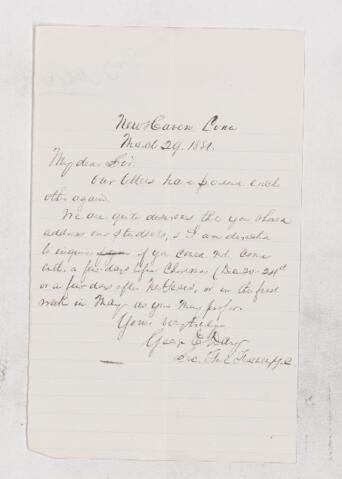 New Haven Conn
March 29. 1881.
My dear Sir.
Our letters have passed each
other again.
We are quite desirous that you should
address our students, & I am directed
to inquire if you could not come
either a few days before
or a few days after or in the first
week in May as you may prefer.
Yours very truly
Geo. E. Day
Sec.